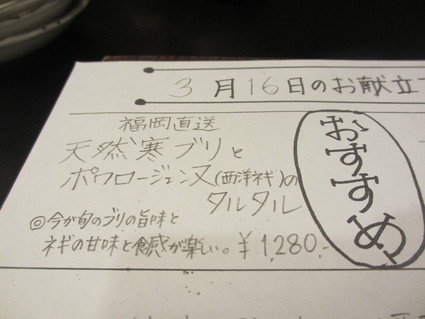 3月16日のお献立
福岡直送
天然寒ブリと
ポワロージェンヌ(西洋ネギ)の
タルタル
◎今が旬のブリの旨味と
ネギの甘味と食感が楽しい。¥1,280.-
おすすめ